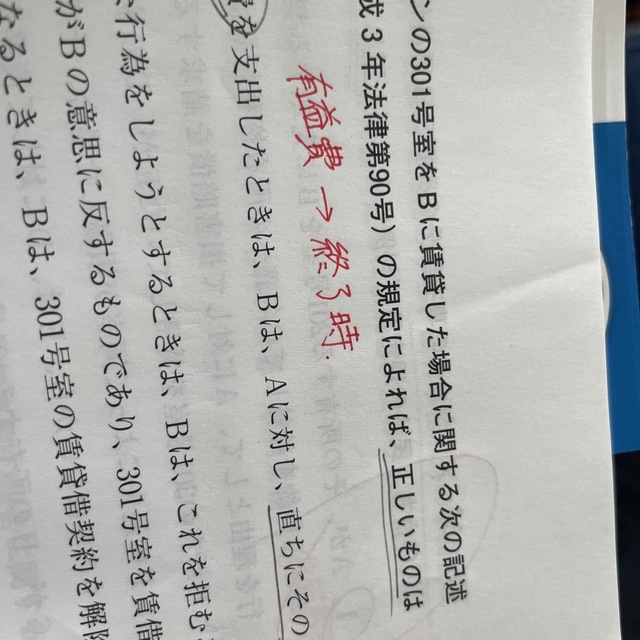 ンの301号室をBに賃貸した場合に関する次の記述
成3年法律第90号）の規定によれば、正しいものは
有益費→終了時.
を支出したときは、Bは、Aに対し、直ちにその
行為をしようとするときは、Bは、これを拒む
がBの意思に反するものであり、301号室を賃借
なるときは、Bは、301号室の賃貸借契約を解除